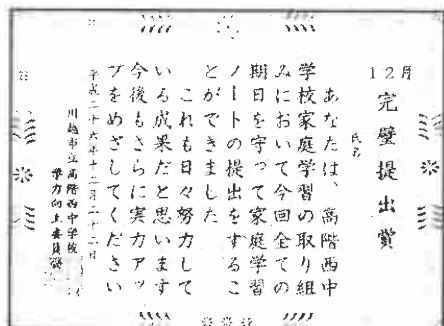 12月
完璧提出賞
氏名
あなたは、高階西中
学校家庭学習の取り組
みにおいて今回全ての
期日を守って家庭学習
ノートの提出をするこ
とができました
これも日々努力して
いる成果だと思います
今後もさらに実力アッ
プをめざしてください
平成二十六年十二月二十二日
川越市立高階西中学校
学力向上委員会